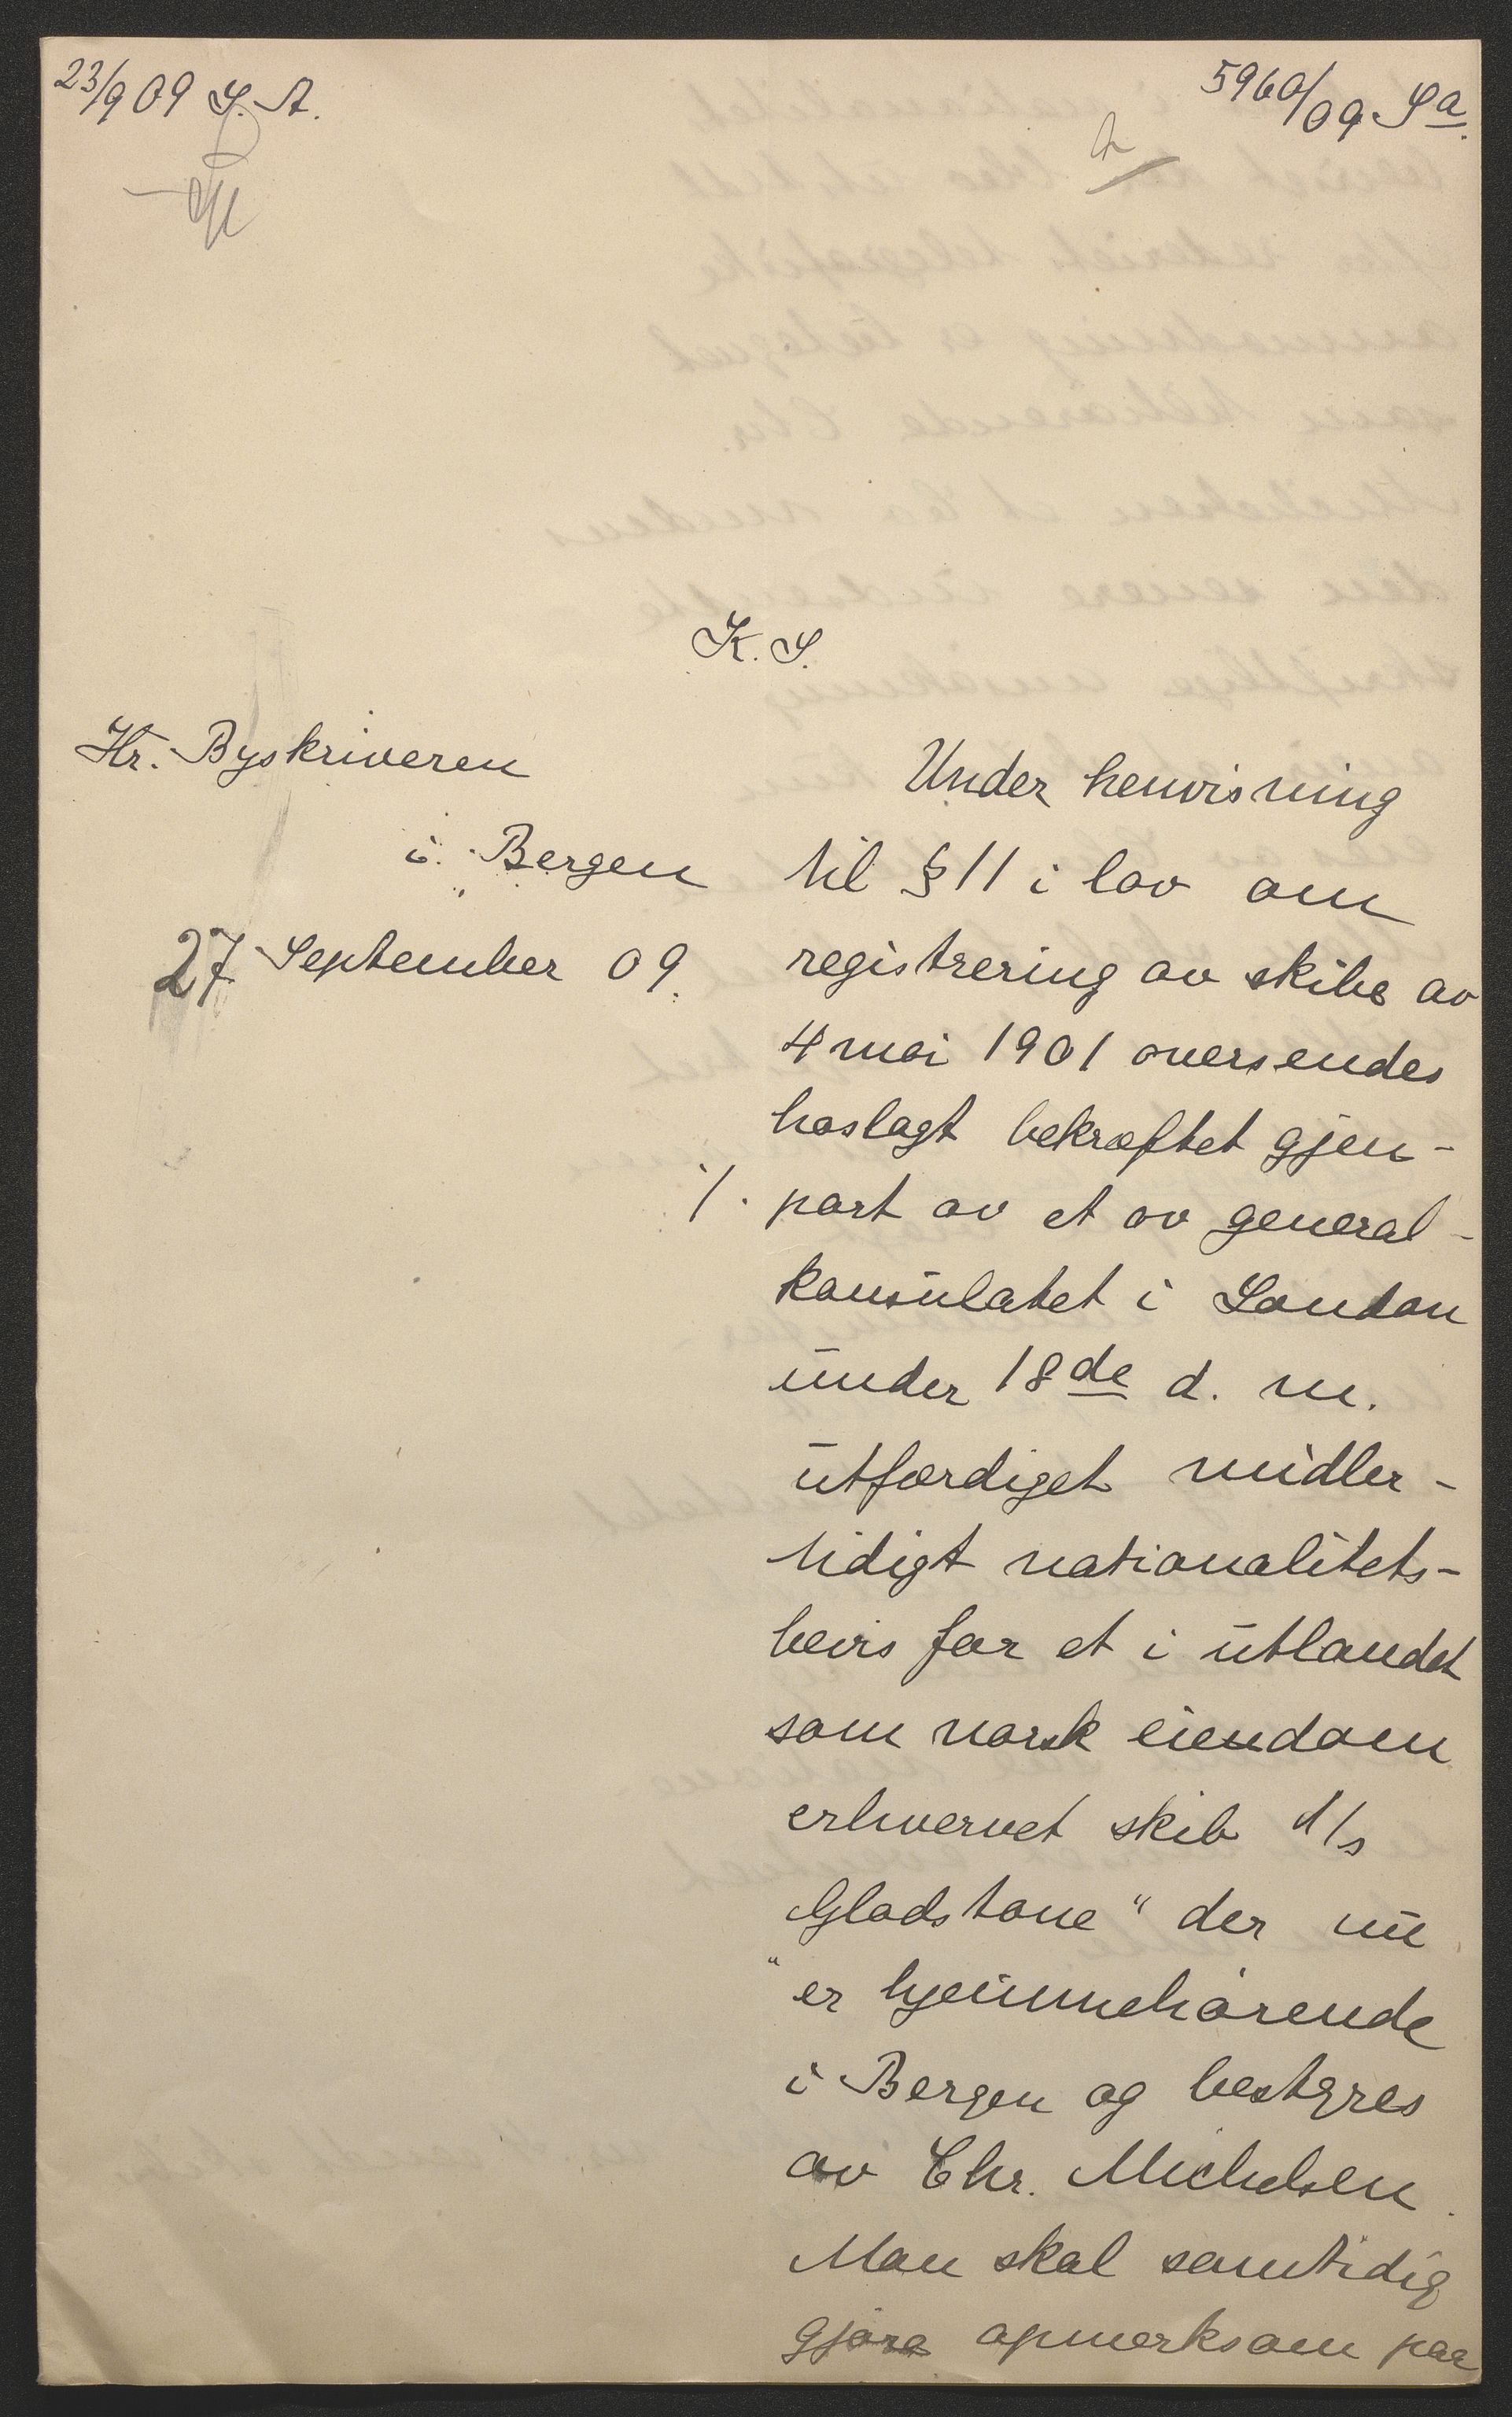 23/9 09 S. A.
5960/09 Sa.
K. S.
Hr. Byskriveren
i Bergen
27 September 09.
Under henvisning
til § 11 i lov om
registrering av skibe av
4 mai 1901 oversendes
hoslagt bekræftet gjen-
./. part av et av general-
konsulatet i London
under 18de d. m.
utfærdiget midler-
tidigt nationalitets-
bevis for et i utlandet
som norsk eiendom
erhvervet skib d/s
Gladstone" der nu
"er hjemmehørende
i Bergen og bestyres
av Chr. Michelsen.
Man skal samtidig
gjøre opmerksom paa